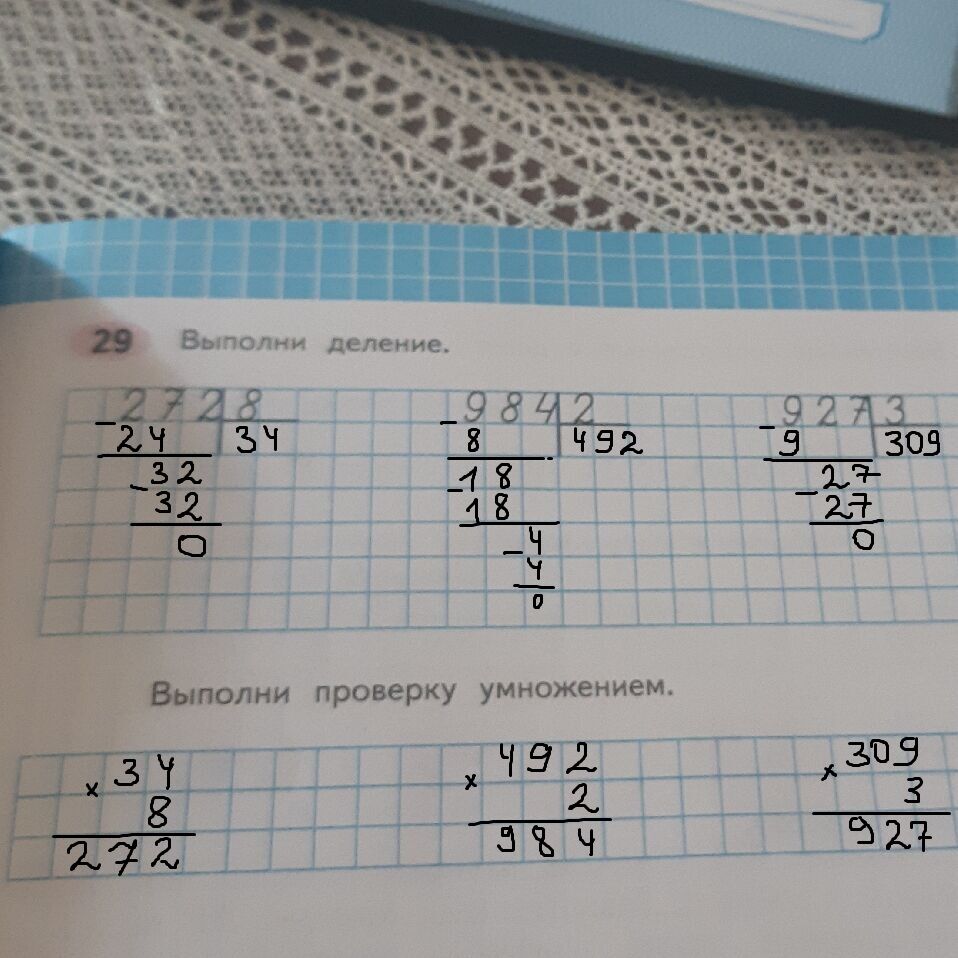 29 Выполни деление.
272 8 984 2 927 3
- 24 34 - 8 492 - 9 309
- 32 - 18 - 27
32 18 27
0 - 4 0
4
0
Выполни проверку умножением.
x 34 x 492 x 309
8 2 3
272 984 927